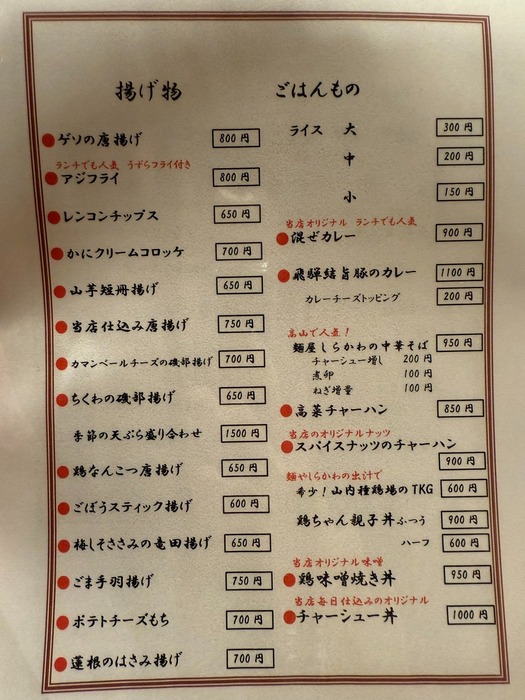 揚げ物
ゲソの唐揚げ 800円
ランチでも人気 うずらフライ付き
アジフライ 800円
レンコンチップス 650円
かにクリームコロッケ 700円
山芋短冊揚げ 650円
当店仕込み唐揚げ 750円
カマンベールチーズの磯部揚げ 700円
ちくわの磯部揚げ 650円
季節の天ぷら盛り合わせ 1500円
鶏なんこつ唐揚げ 650円
ごぼうスティック揚げ 600円
梅しそささみの竜田揚げ 650円
ごま手羽揚げ 750円
ポテトチーズもち 700円
蓮根のはさみ揚げ 700円
ごはんもの
ライス 大 300円
中 200円
小 150円
当店オリジナル ランチでも人気
混ぜカレー 900円
飛騨結旨豚のカレー 1100円
カレーチーズトッピング 200円
高山で人気!
麺屋しらかわの中華そば 950円
チャーシュー増し 200円
煮卵 100円
ねぎ増量 100円
高菜チャーハン 850円
当店のオリジナルナッツ
スパイスナッツのチャーハン
900円
麺やしらかわの出汁で
希少!山内種鶏場のTKG 600円
鶏ちゃん親子丼 ふつう 900円
ハーフ 600円
当店オリジナル味噌
鶏味噌焼き丼 950円
当店毎日仕込みのオリジナル
チャーシュー丼 1000円